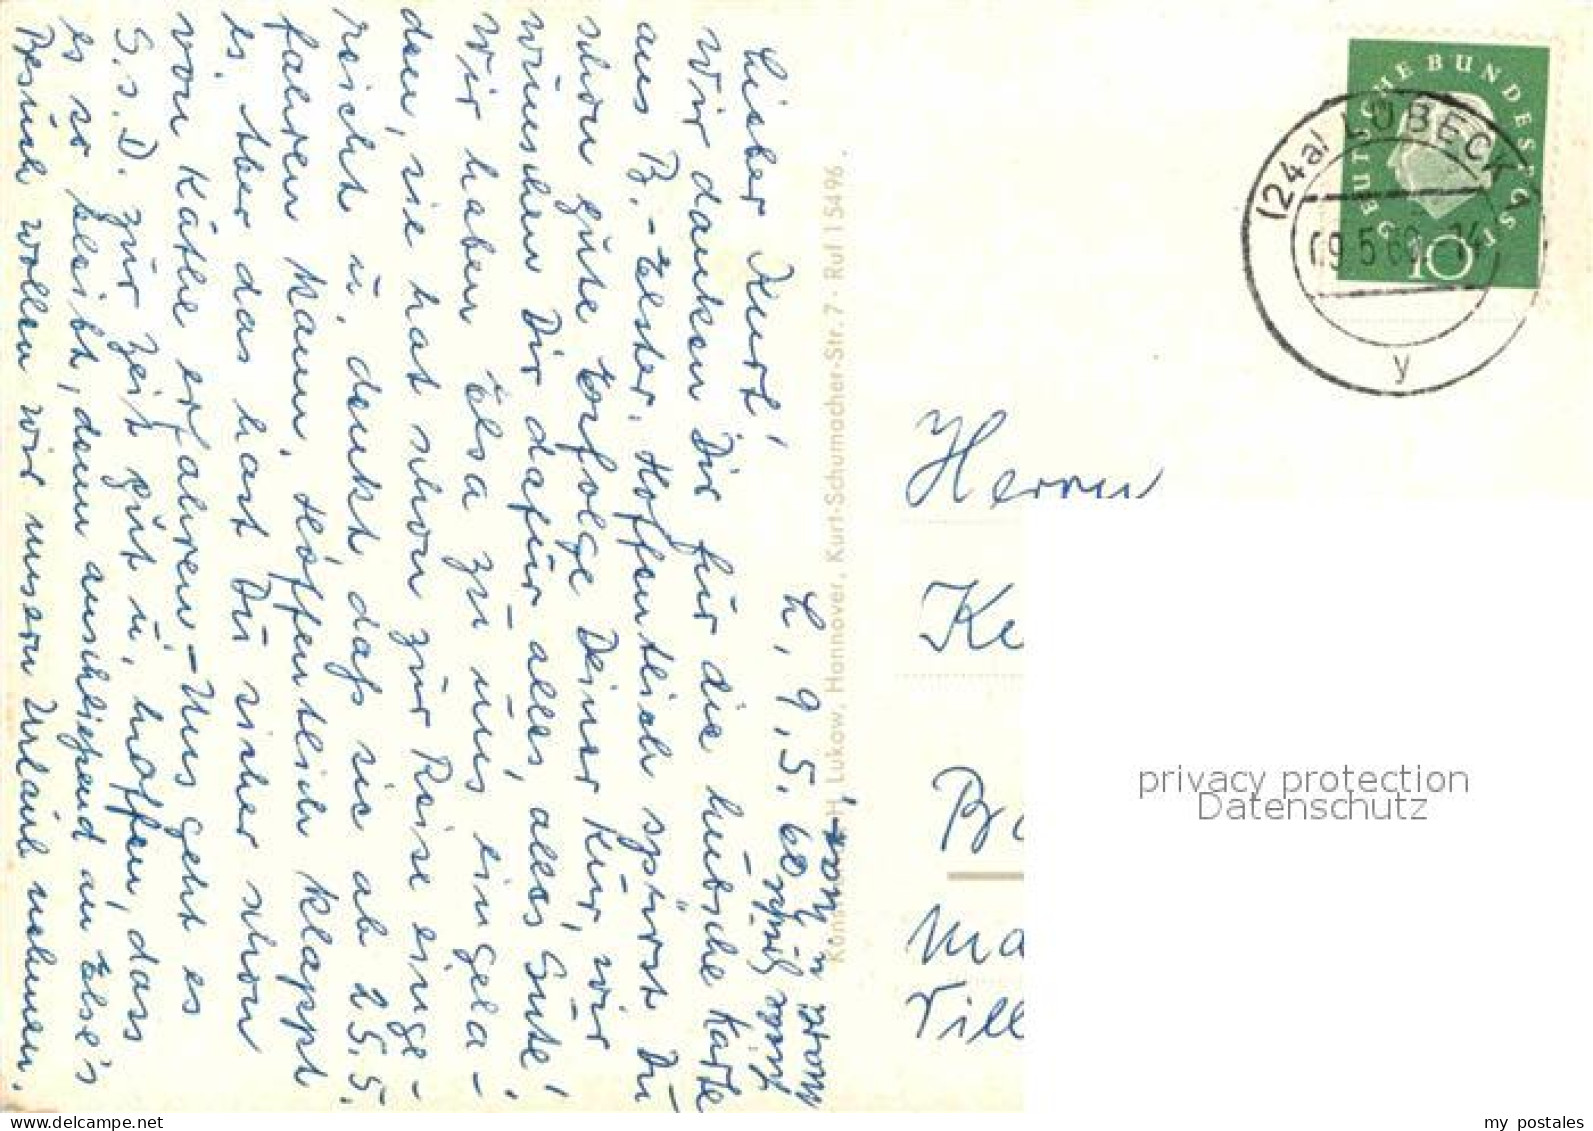 L, 9. 5. 60.
Lieber Kurt!
Wir danken Dir für die hübsche Karte
aus B.-Elster. Hoffentlich spürst Du
schon gute Erfolge Deiner Kur, wir
wünschen Dir dafür alles, alles Gute!
Wir haben Elsa zu uns eingela-
den, sie hat schon zur Reise einge-
reicht u. denkt, dass sie ab 25.5.
fahren kann. Hoffentlich klappt
es. Aber das hast Du sicher schon
von Käthe erfahren. - Uns geht es
G.s.D. zur Zeit gut u. hoffen, dass
es so bleibt, denn anschließend an Else's
Besuch wollen wir unsern Urlaub nehmen.
H. Lukow, Hannover, Kurt-Schumacher-Str. 7 · Ruf 15496.
DEUTSCHE BUNDESPOST
10
(24a) LÜBECK 1
09.5.60.-14
y
Herrn
Ke
Ba
Ma
Vill
privacy protection
Datenschutz
my postales